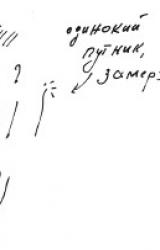 одинокий
путник,
замерз